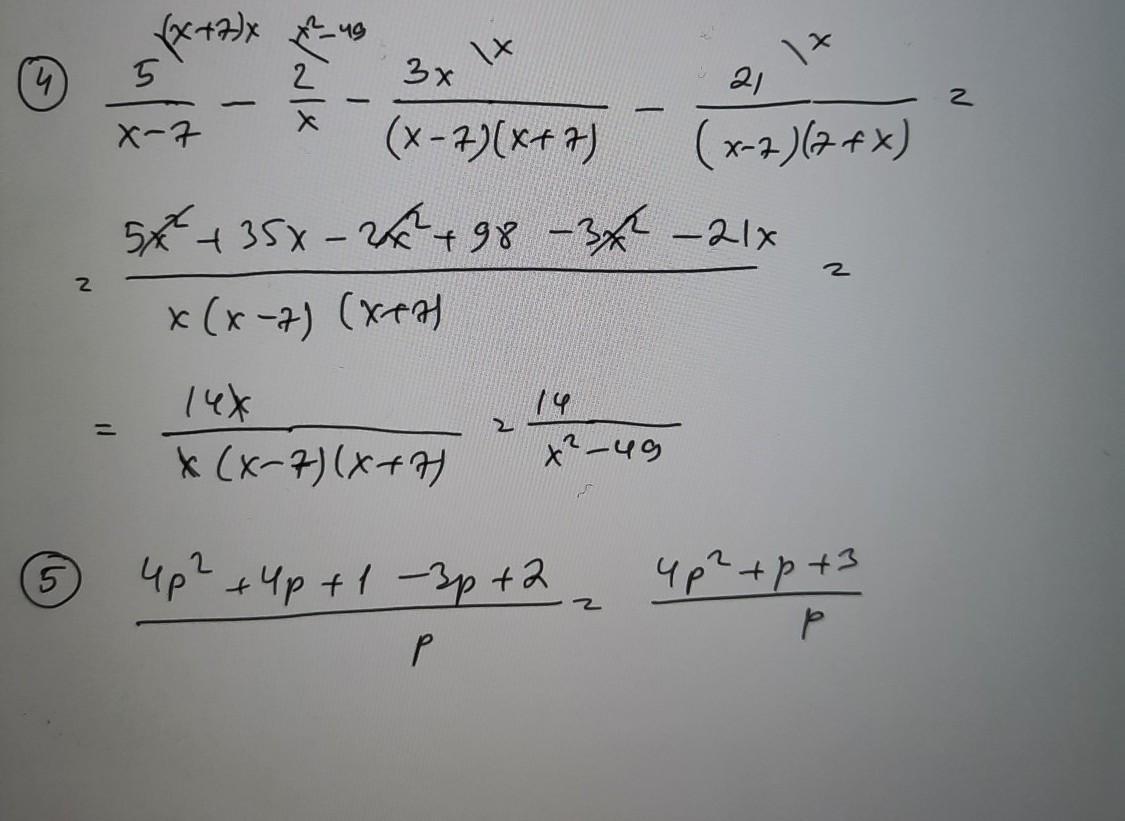 ④ \frac{5^{\(x+7)x}}{x-7} - \frac{2^{\x²-49}}{x} - \frac{3x^{\x}}{(x-7)(x+7)} - \frac{21^{\x}}{(x-7)(7+x)} =
= \frac{5x² + 35x - 2x² + 98 - 3x² - 21x}{x(x-7)(x+7)} =
= \frac{14x}{x(x-7)(x+7)} = \frac{14}{x²-49}
⑤ \frac{4p² + 4p + 1 - 3p + 2}{p} = \frac{4p² + p + 3}{p}